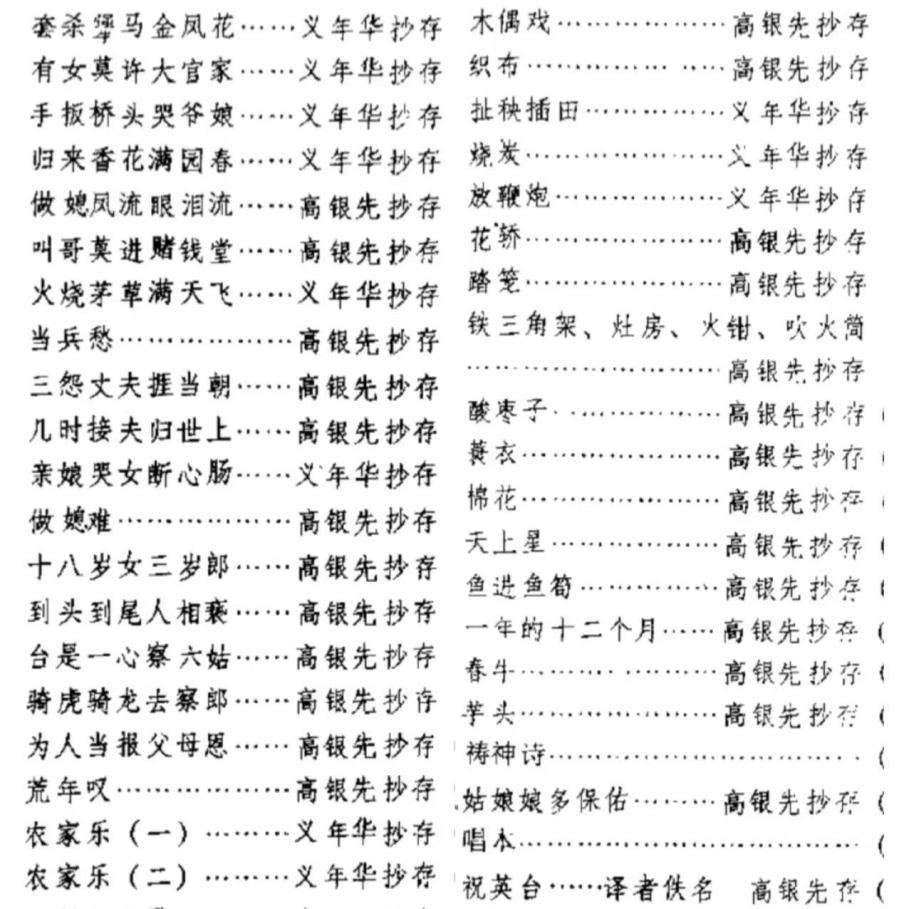 套杀犟马金凤花……义年华抄存
有女莫许大官家……义年华抄存
手扳桥头哭爷娘……义年华抄存
归来香花满园春……义年华抄存
做媳风流眼泪流……高银先抄存
叫哥莫进赌钱堂……高银先抄存
火烧茅草满天飞……义年华抄存
当兵愁………………高银先抄存
三怨丈夫捱当朝……高银先抄存
几时接夫归世上……高银先抄存
亲娘哭女断心肠……义年华抄存
做媳难………………高银先抄存
十八岁女三岁郎……高银先抄存
到头到尾人相亵……高银先抄存
台是一心察六姑……高银先抄存
骑虎骑龙去察郎……高银先抄存
为人当报父母恩……高银先抄存
荒年叹………………高银先抄存
农家乐（一）………义年华抄存
农家乐（二）………义年华抄存
木偶戏………………高银先抄存
织布…………………高银先抄存
扯秧插田……………义年华抄存
烧炭…………………义年华抄存
放鞭炮………………义年华抄存
花轿…………………高银先抄存
踏笼…………………高银先抄存
铁三角架、灶房、火钳、吹火筒
………………………高银先抄存
酸枣子………………高银先抄存
蓑衣…………………高银先抄存
棉花…………………高银先抄存
天上星………………高银先抄存
鱼进鱼笱……………高银先抄存
一年的十二个月……高银先抄存
春牛…………………高银先抄存
芋头…………………高银先抄存
祷神诗……………………………
姑娘娘多保佑………高银先抄存
唱本………………………………
祝英台……译者佚名 高银先存